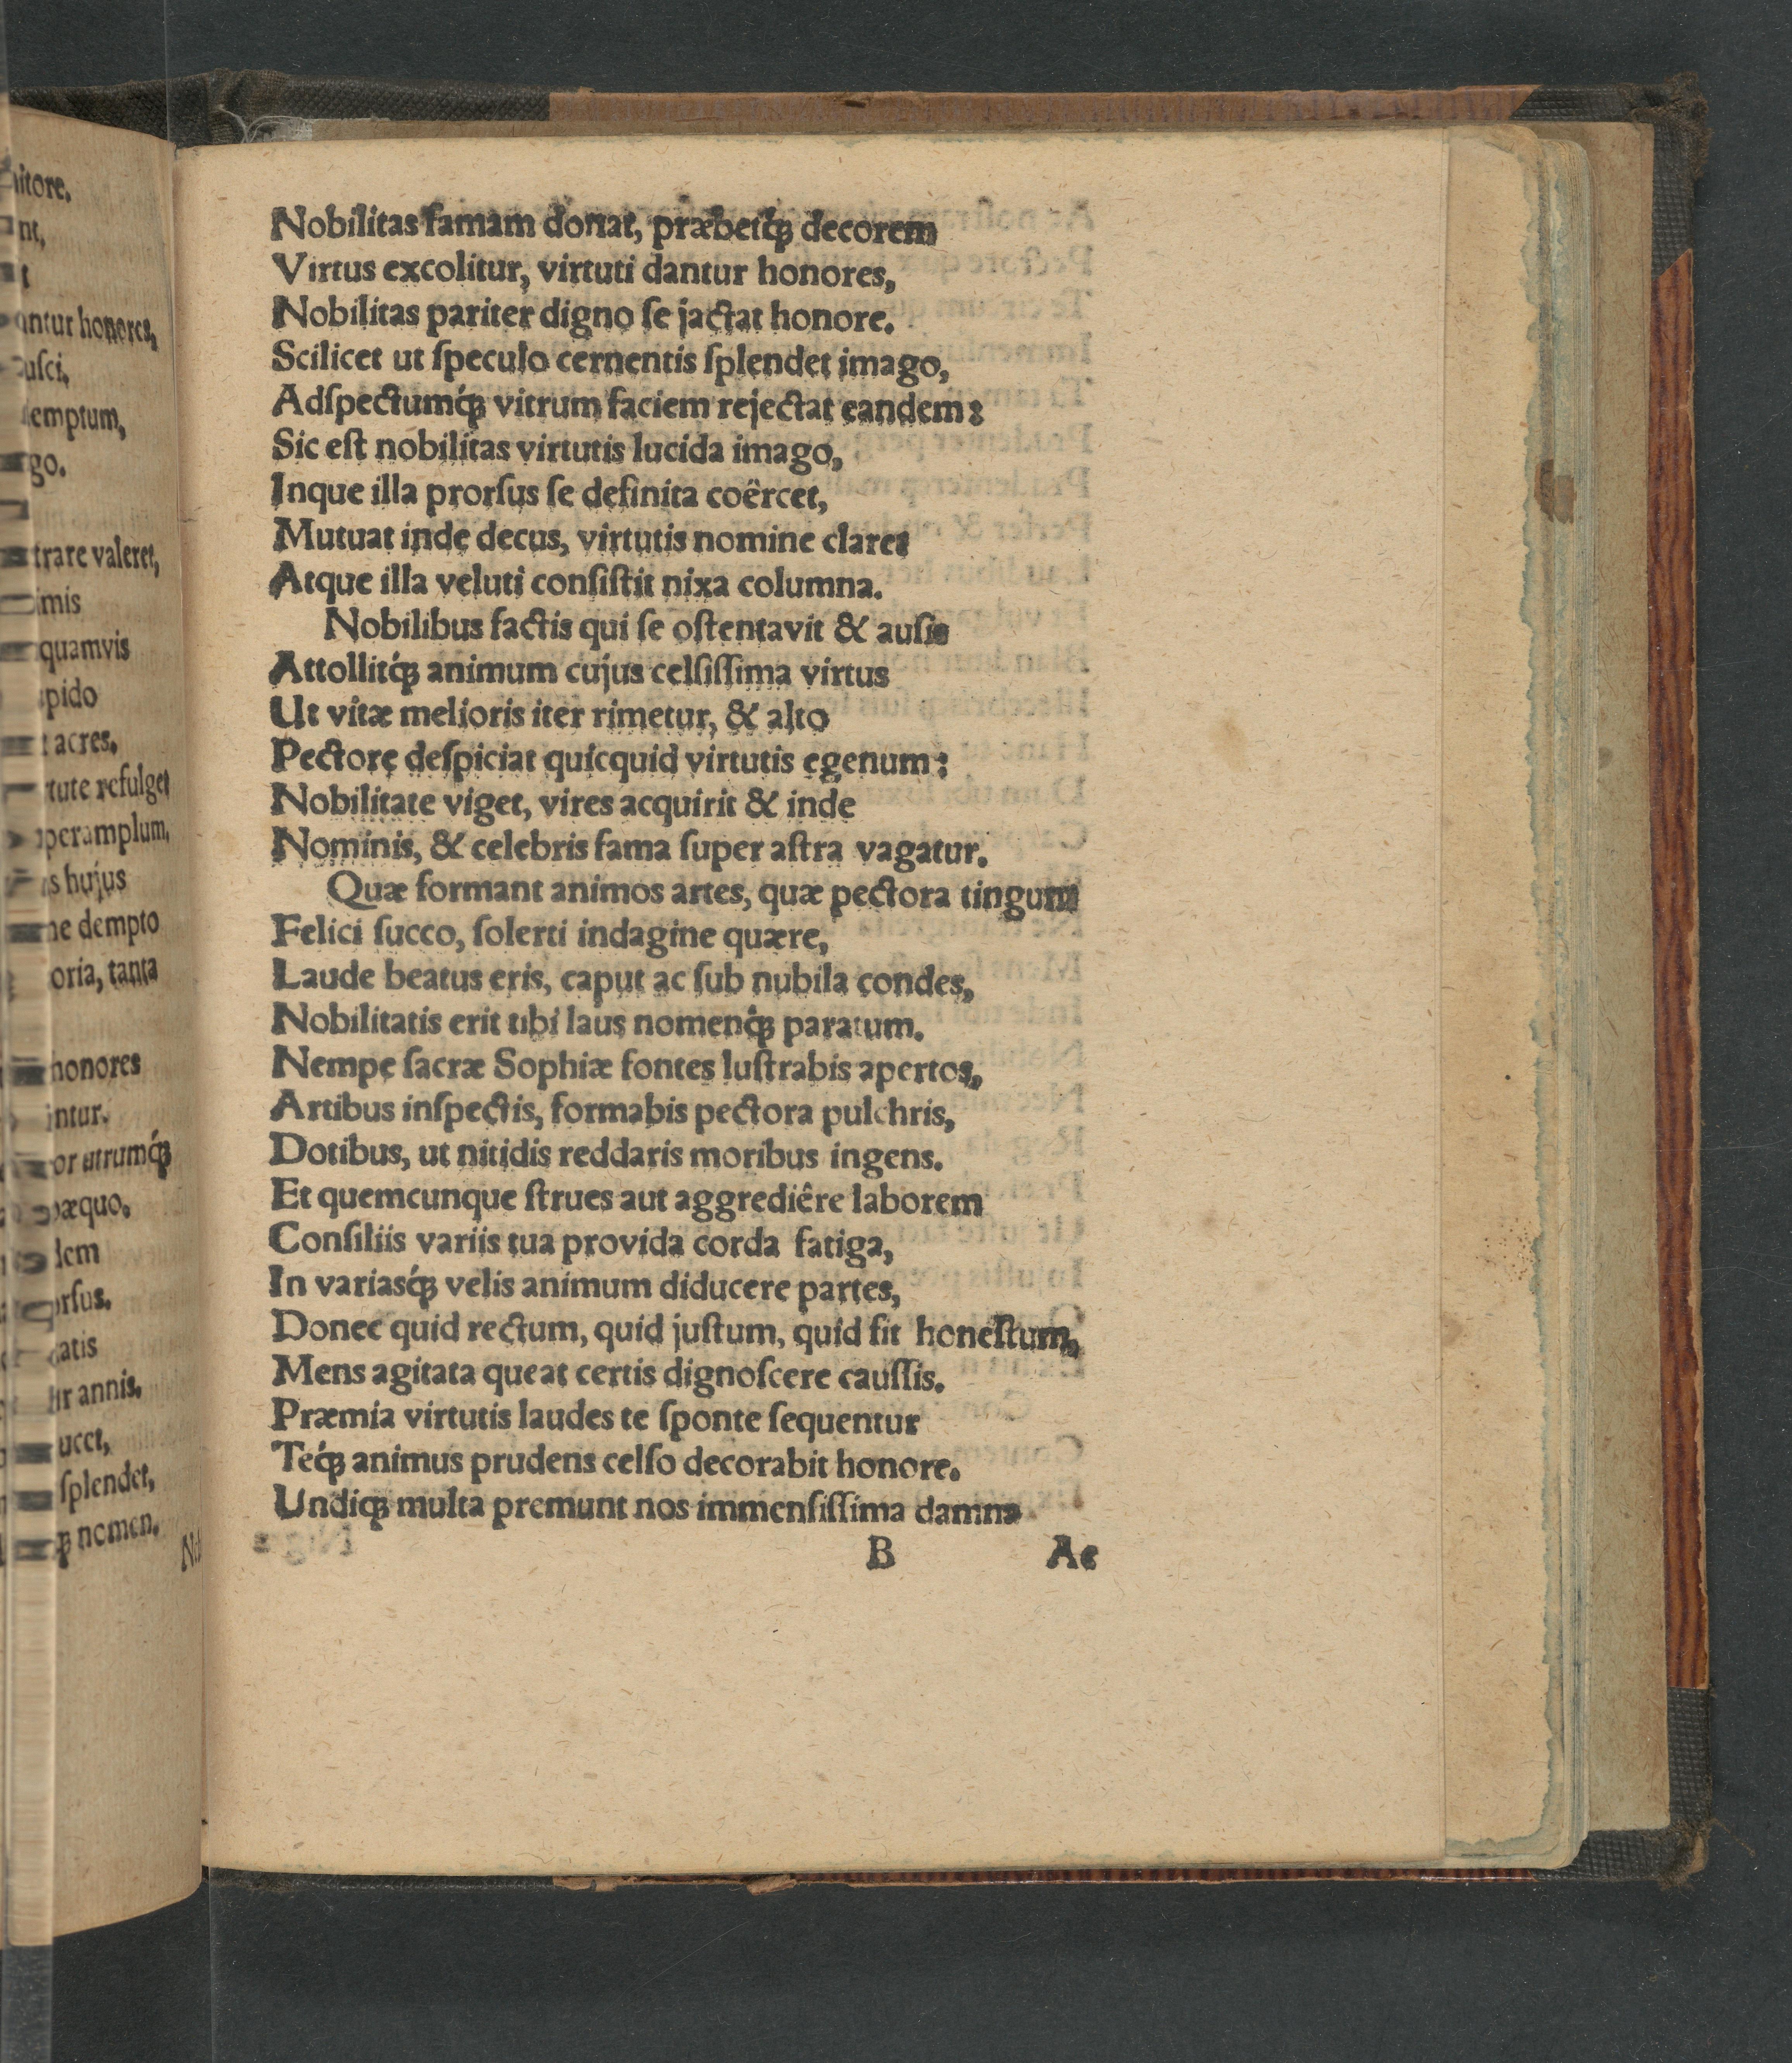 itore,
nt,
t
antur honores,
usci,
emptum,
go.
trare valeret,
imis
quamvis
pido
t acres.
tute refulget
peramplum,
s hujus
ne dempto
oria, tanta
honores
intur.
or utrumq́ꝫ
æquo.
dem
orſus.
atis
ir annis.
ucet,
ſplendet,
ꝗꝫ nomen.
Nobilitas famam donat, præbetq́ꝫ decorem
Virtus excolitur, virtuti dantur honores,
Nobilitas pariter digno ſe jactat honore.
Scilicet ut ſpeculo cernentis ſplendet imago,
Adſpectumq́ꝫ vitrum faciem rejectat eandem:
Sic eſt nobilitas virtutis lucida imago,
Inque illa prorſus ſe definita coërcet,
Mutuat inde decus, virtutis nomine claret
Atque illa veluti conſiſtit nixa columna.
Nobilibus factis qui ſe oſtentavit & auſis
Attollitq́ꝫ animum cujus celſiſſima virtus
Ut vitæ melioris iter rimetur, & alto
Pectore deſpiciat quicquid virtutis egenum:
Nobilitate viget, vires acquirit & inde
Nominis, & celebris fama ſuper aſtra vagatur.
Quæ formant animos artes, quæ pectora tingunt
Felici ſucco, ſolerti indagine quære,
Laude beatus eris, caput ac ſub nubila condes,
Nobilitatis erit tibi laus nomenq́ꝫ paratum.
Nempe ſacræ Sophiæ fontes luſtrabis apertos,
Artibus inſpectis, formabis pectora pulchris,
Dotibus, ut nitidis reddaris moribus ingens.
Et quemcunque ſtrues aut aggrediêre laborem
Conſiliis variis tua provida corda fatiga,
In variasq́ꝫ velis animum diducere partes,
Donec quid rectum, quid juſtum, quid ſit honeſtum,
Mens agitata queat certis dignoſcere cauſſis.
Præmia virtutis laudes te ſponte ſequentur
Teq́ꝫ animus prudens celſo decorabit honore.
Undiqꝫ multa premunt nos immenſiſſima damna
B Ac